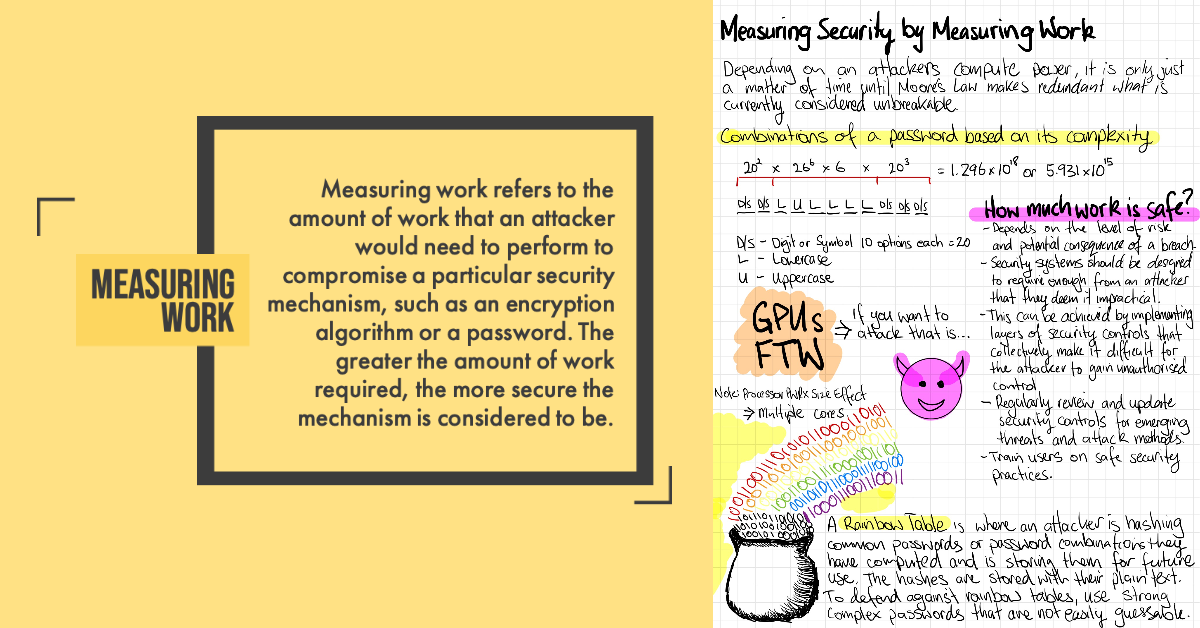 MEASURING
WORK
Measuring work refers to the
amount of work that an attacker
would need to perform to
compromise a particular security
mechanism, such as an encryption
algorithm or a password. The
greater the amount of work
required, the more secure the
mechanism is considered to be.
Measuring Security by Measuring Work
Depending on an attackers compute power, it is only just
a matter of time until Moore's Law makes redundant what is
currently considered unbreakable.
Combinations of a password based on its complexity
20² x 26⁶ x 6 x 20³ = 1.296x10¹⁸ or 5.931x10¹⁵
D/S D/S L U L L L L D/S D/S D/S
D/S - Digit or Symbol 10 options each = 20
L - Lowercase
U - Uppercase
GPUs
FTW
⇒ If you want to
attack that is...
Note: Processor Size Effect
→ Multiple cores
How much work is safe?
- Depends on the level of risk
and potential consequence of a breach.
- Security systems should be designed
to require enough from an attacker
that they deem it impractical.
- This can be achieved by implementing
layers of security controls that
collectively make it difficult for
the attacker to gain unauthorised
control.
- Regularly review and update
security controls for emerging
threats and attack methods.
- Train users on safe security
practices.
A Rainbow Table is where an attacker is hashing
common passwords or password combinations they
have computed and is storing them for future
use. The hashes are stored with their plain text.
To defend against rainbow tables, use strong
complex passwords that are not easily guessable.